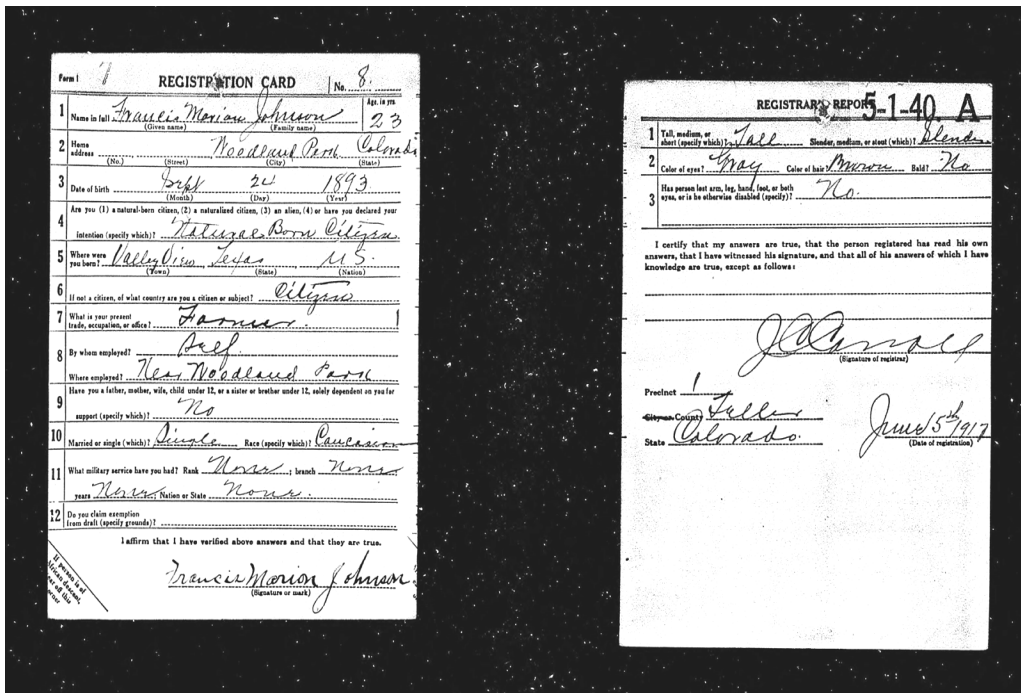 Form 1 REGISTRATION CARD No. 8.
1 Name in full Francis Marion Johnson Age, in yrs. 23
(Given name) (Family name)
2 Home address Woodland Park Colorado
(No.) (Street) (City) (State)
3 Date of birth Sept 24 1893
(Month) (Day) (Year)
4 Are you (1) a natural-born citizen, (2) a naturalized citizen, (3) an alien, (4) or have you declared your
intention (specify which)? Natural Born Citizen
5 Where were you born? Valley View Texas U.S.
(Town) (State) (Nation)
6 If not a citizen, of what country are you a citizen or subject? Citizen
7 What is your present trade, occupation, or office? Farmer
8 By whom employed? Self
Where employed? Near Woodland Park
9 Have you a father, mother, wife, child under 12, or a sister or brother under 12, solely dependent on you for
support (specify which)? No
10 Married or single (which)? Single Race (specify which)? Caucasian
11 What military service have you had? Rank None ; branch None
years None ; Nation or State None.
12 Do you claim exemption from draft (specify grounds)?
I affirm that I have verified above answers and that they are true.
Francis Marion Johnson
(Signature or mark)
If person is of
African descent,
off this
corner
REGISTRAR'S REPORT 5-1-40. A
1 Tall, medium, or short (specify which)? Tall Slender, medium, or stout (which)? Slender
2 Color of eyes? Gray Color of hair? Brown Bald? No
3 Has person lost arm, leg, hand, foot, or both eyes, or is he otherwise disabled (specify)? No.
I certify that my answers are true, that the person registered has read his own
answers, that I have witnessed his signature, and that all of his answers of which I have
knowledge are true, except as follows:
J C Carroll
(Signature of registrar)
Precinct 1
City or County Teller
State Colorado. June 5th 1917
(Date of registration)